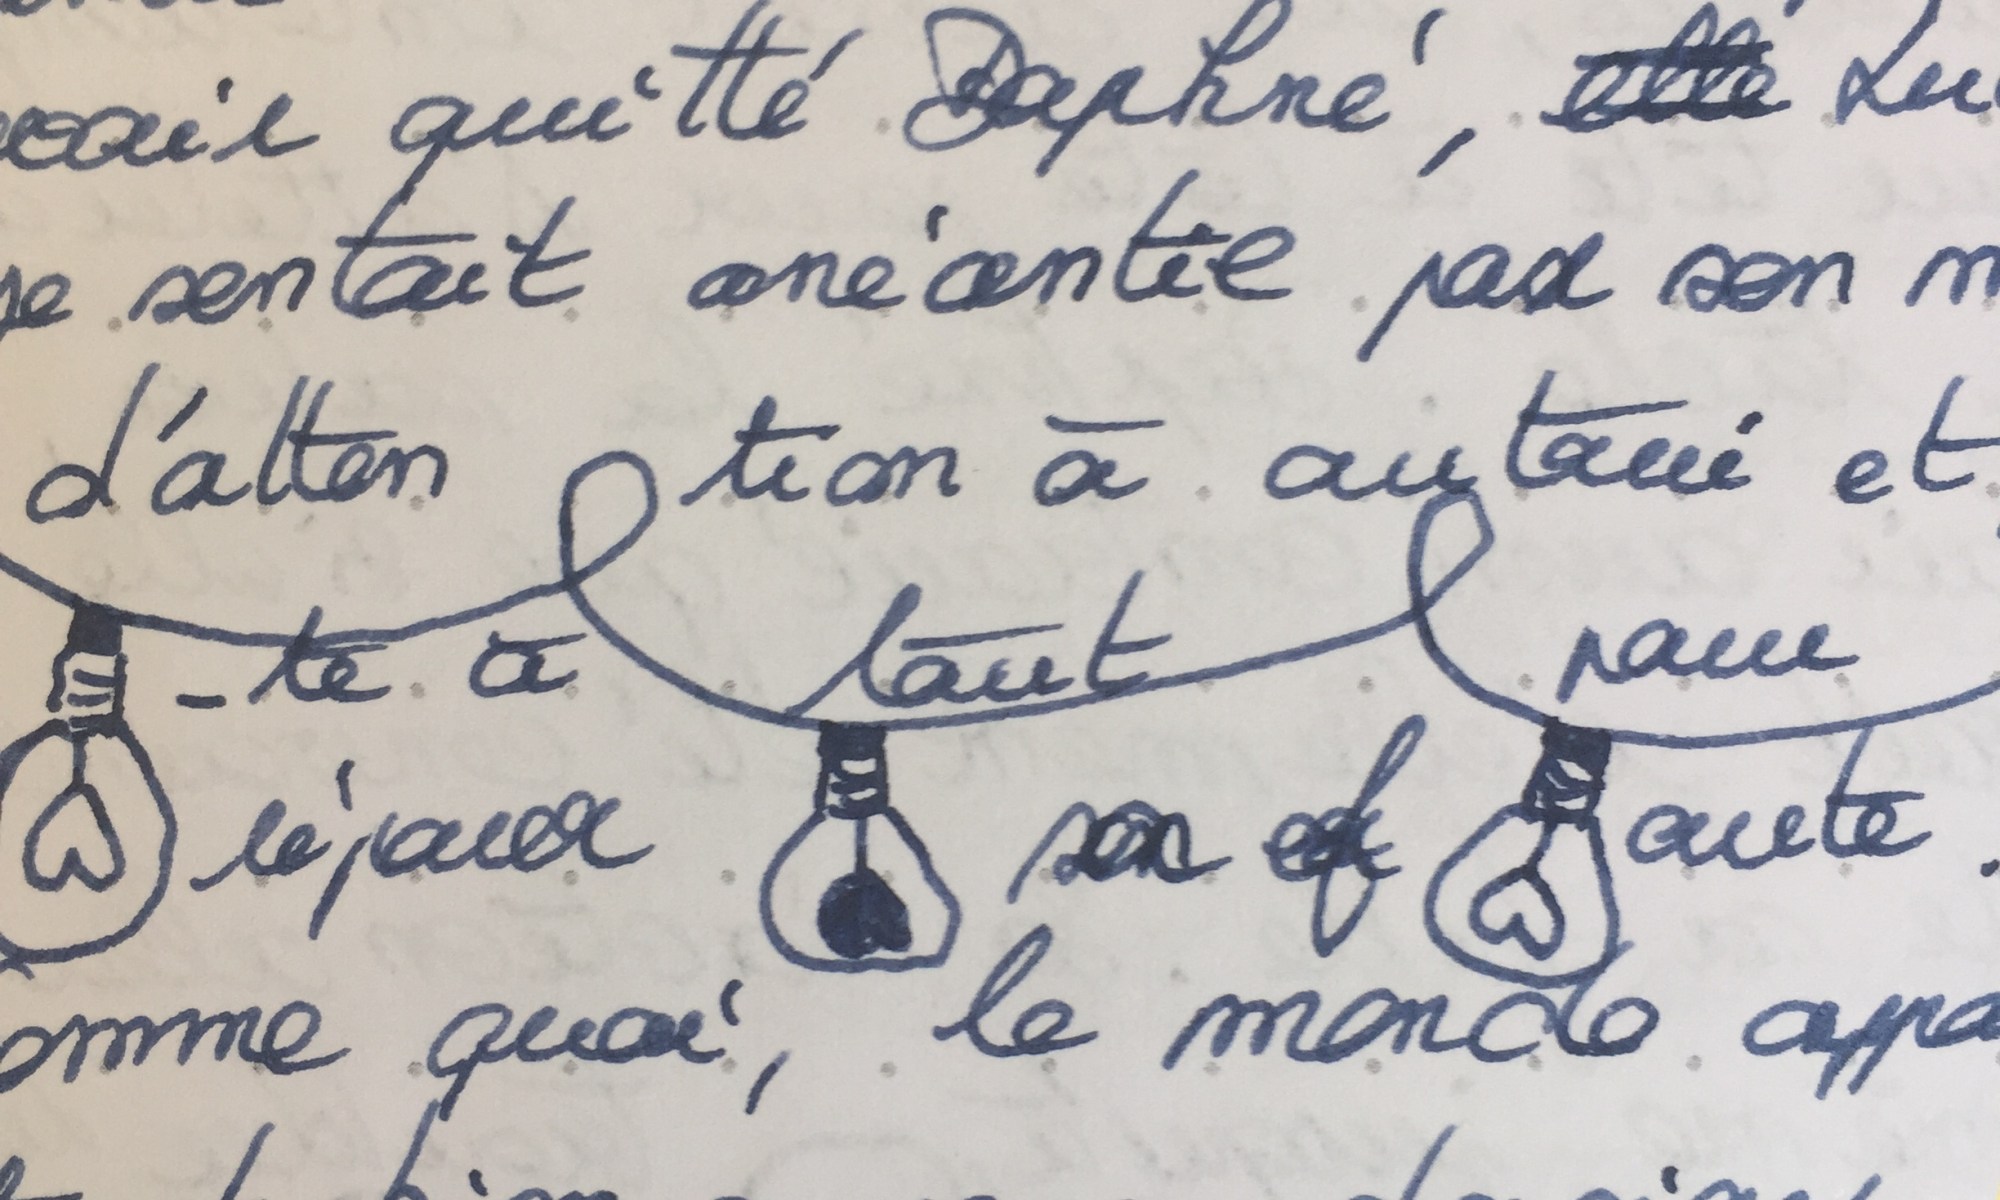 avoir quitté Daphné, Lu
se sentait anéantie par son m
d'atten tion à autrui et
-te à tout pour
réparer son ef
omme quoi, le monde appa